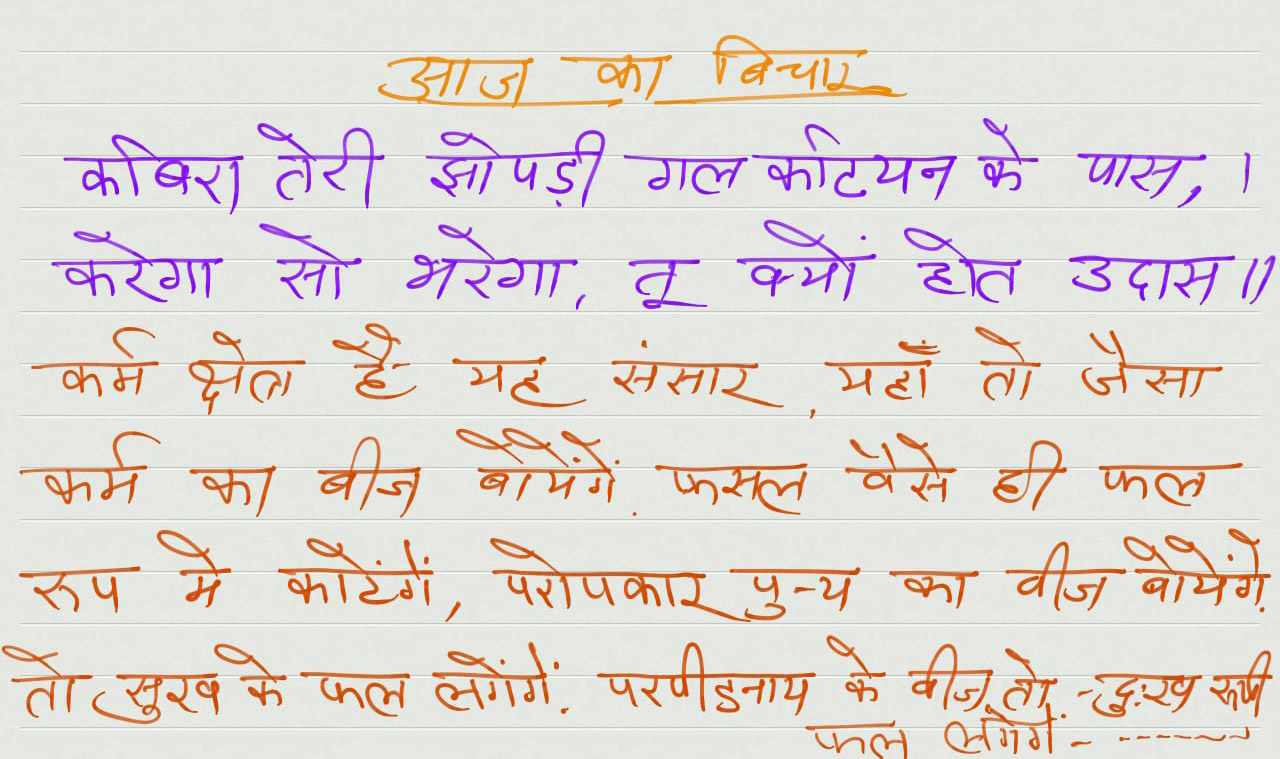 आज का बिचार
कबिरा तेरी झोपड़ी गल कटियन के पास, ।
करेगा सो भरेगा, तू क्यों होत उदास ॥
कर्म क्षेत्र है यह संसार, यहाँ तो जैसा
कर्म का बीज बोयेंगें. फसल वैसे ही फल
रूप मे काटेंगें, परोपकार पुन्य का बीज बोयेंगे.
तो सुख के फल लगेंगें. परपीडनाय के बीज तो - दुःख रूपी
फल लगेंगें - -------